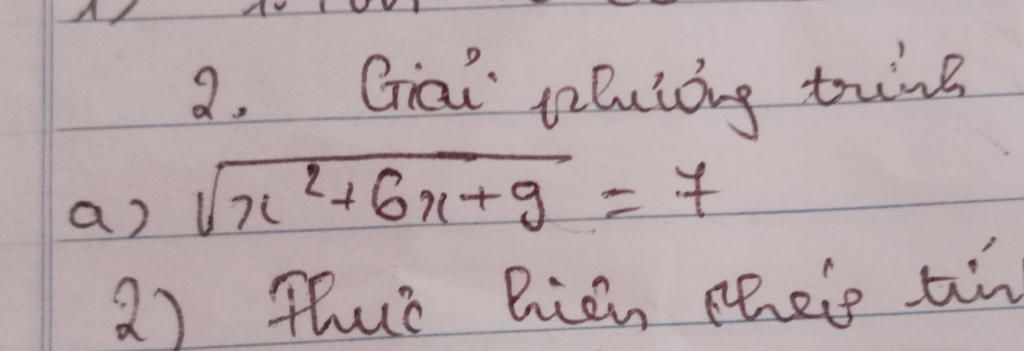 2. Giải phương trình
a) √x²+6x+9 = 7
2) Thực hiện phép tín